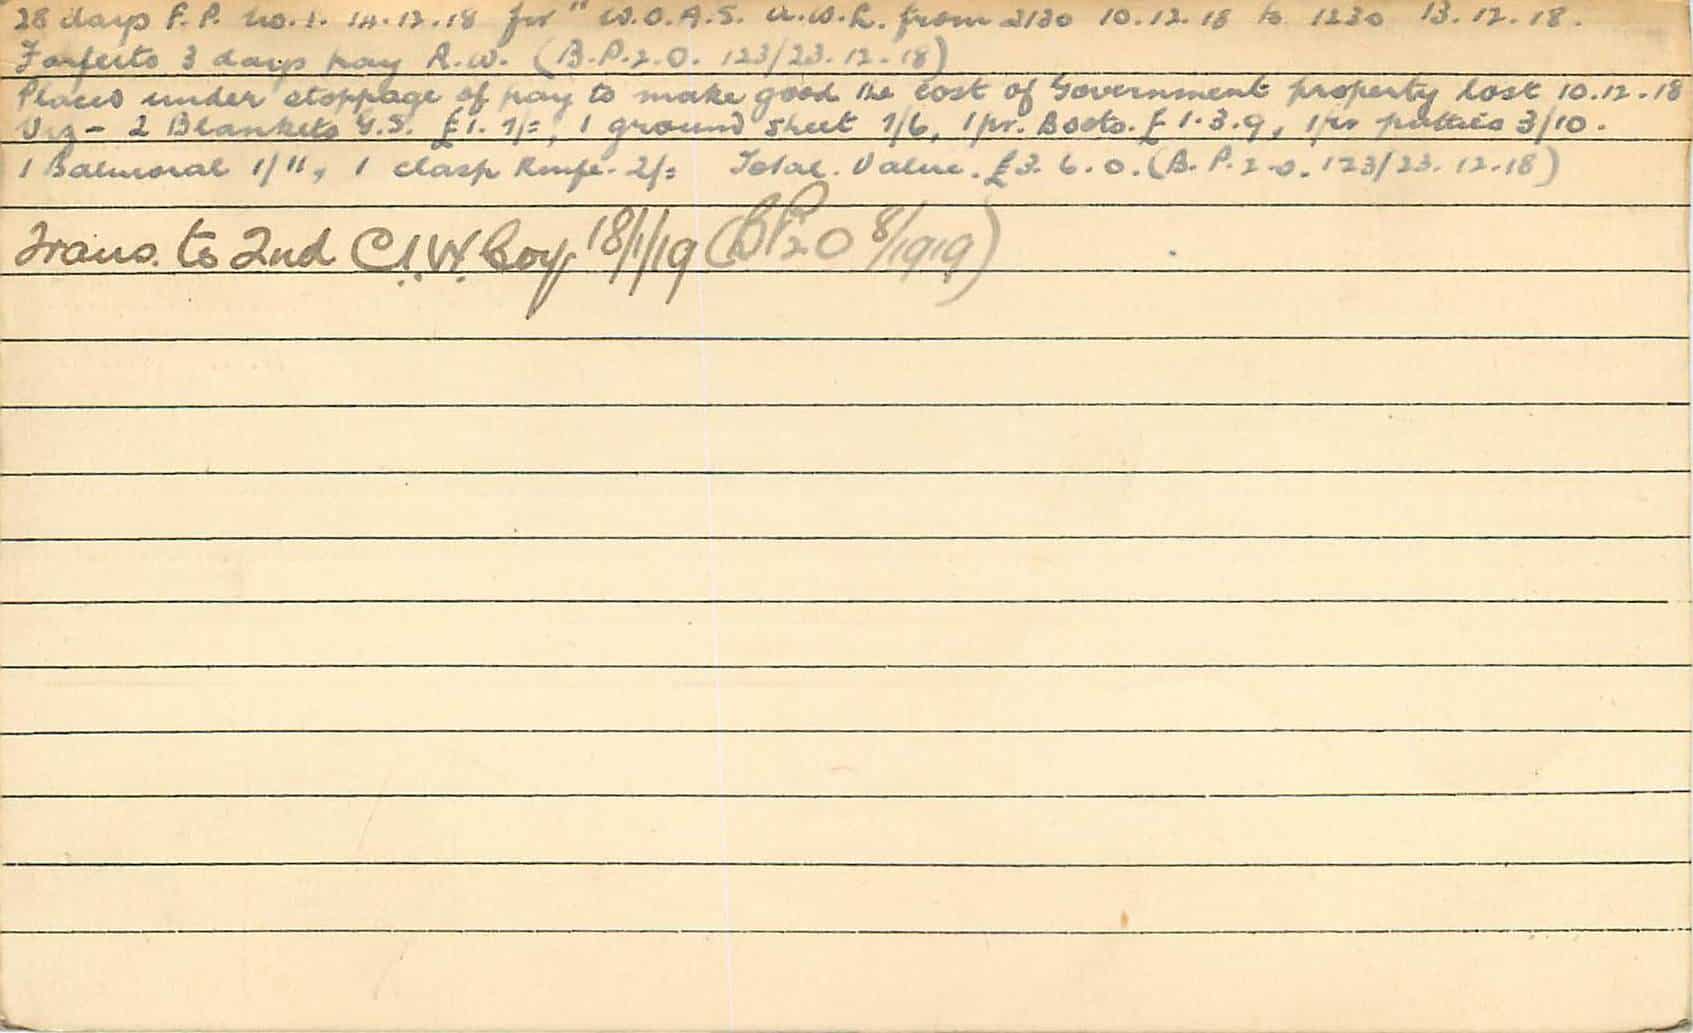 28 days F.P. No.1. 14.12.18 for "W.O.A.S. A.W.L. from 2130 10.12.18 to 1230 13.12.18.
Forfeits 3 days pay R.W. (B.P.2.O. 123/23.12.18)
Placed under stoppage of pay to make good the cost of Government property lost 10.12.18
Viz - 2 Blankets G.S. £1.7/=, 1 ground sheet 7/6, 1 pr. Boots. £1.3.9, 1 pr puttees 3/10.
1 Balmoral 1/11, 1 clasp Knife. 2/= Total. Value. £3.6.0. (B.P.2.O. 123/23.12.18)
Trans. to 2nd C.I.W. Coy 18/1/19 (BP2O 8/1919)